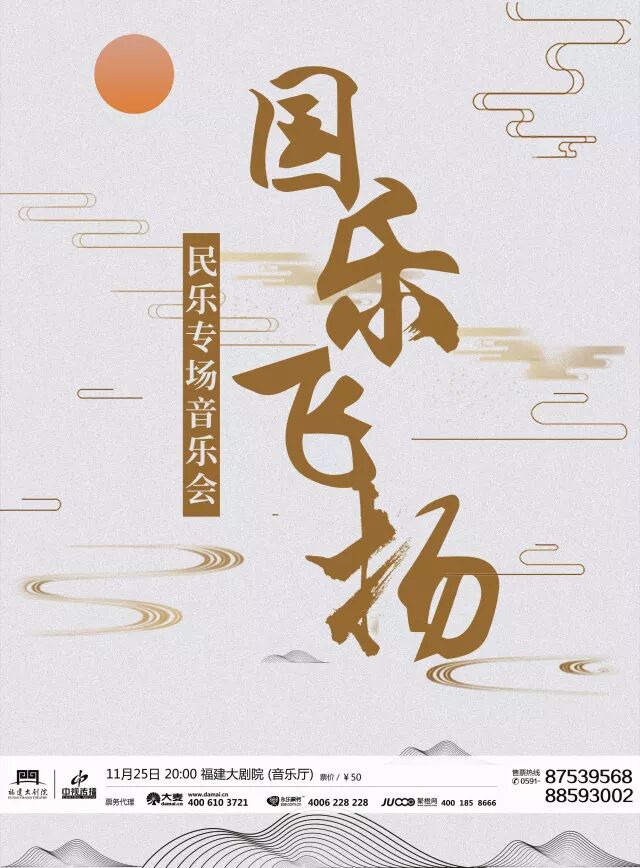 国乐飞扬
民乐专场音乐会
福建大剧院
中视传播
11月25日 20:00 福建大剧院 (音乐厅) 票价 / ¥50
票务代理
大麦
www.damai.cn
damai.cn
400 610 3721
4006 228 228
JUOOO 聚橙网 400 185 8666
售票热线
0591-
87539568
88593002